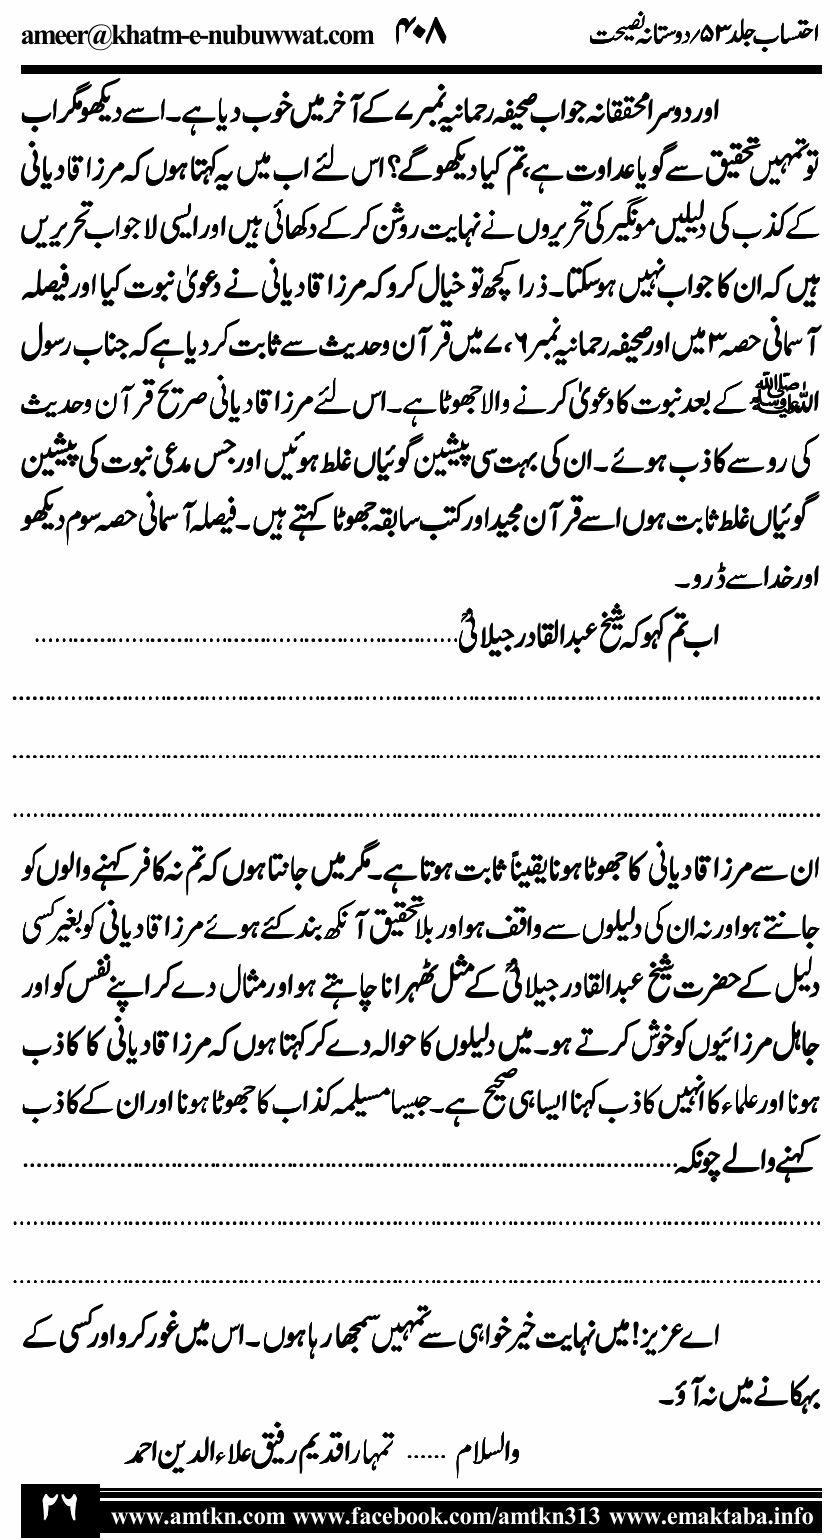 احتساب جلد ۵۳/دوستانہ نصیحت ۴۰۸ ameer@khatm-e-nubuwwat.com
اور دوسرا محققانہ جواب صحیفہ رحمانیہ نمبر۷ کے آخر میں خوب دیا ہے۔ اسے دیکھو مگر اب
تو تمہیں تحقیق سے گویا عداوت ہے، تم کیا دیکھو گے؟ اس لئے اب میں یہ کہتا ہوں کہ مرزا قادیانی
کے کذب کی دلیلیں مونگیر کی تحریروں نے نہایت روشن کر کے دکھائی ہیں اور ایسی لاجواب تحریریں
ہیں کہ ان کا جواب نہیں ہوسکتا۔ ذرا کچھ تو خیال کرو کہ مرزا قادیانی نے دعویٰ نبوت کیا اور فیصلہ
آسمانی حصہ۳ میں اور صحیفہ رحمانیہ نمبر۶،۷ میں قرآن وحدیث سے ثابت کر دیا ہے کہ جناب رسول
اللہ ﷺ کے بعد نبوت کا دعویٰ کرنے والا جھوٹا ہے۔ اس لئے مرزا قادیانی صریح قرآن وحدیث
کی رو سے کاذب ہوئے۔ ان کی بہت سی پیشین گوئیاں غلط ہوئیں اور جس مدعی نبوت کی پیشین
گوئیاں غلط ثابت ہوں اسے قرآن مجید اور کتب سابقہ جھوٹا کہتے ہیں۔ فیصلہ آسمانی حصہ سوم دیکھو
اور خدا سے ڈرو۔
اب تم کہو کہ شیخ عبدالقادر جیلانیؒ ................................................................
................................................................................................
................................................................................................
................................................................................................
ان سے مرزا قادیانی کا جھوٹا ہونا یقیناً ثابت ہوتا ہے۔ مگر میں جانتا ہوں کہ تم نہ کافر کہنے والوں کو
جانتے ہو اور نہ ان کی دلیلوں سے واقف ہو اور بلاتحقیق آنکھ بند کئے ہوئے مرزا قادیانی کو بغیر کسی
دلیل کے حضرت شیخ عبدالقادر جیلانیؒ کے مثل ٹھہرانا چاہتے ہو اور مثال دے کر اپنے نفس کو اور
جاہل مرزائیوں کو خوش کرتے ہو۔ میں دلیلوں کا حوالہ دے کر کہتا ہوں کہ مرزا قادیانی کا کاذب
ہونا اور علماء کا انہیں کاذب کہنا ایسا ہی صحیح ہے۔ جیسا مسیلمہ کذاب کا جھوٹا ہونا اور ان کے کاذب
کہنے والے چونکہ ................................................................................
................................................................................................
................................................................................................
اے عزیز! میں نہایت خیرخواہی سے تمہیں سمجھا رہا ہوں۔ اس میں غور کرو اور کسی کے
بہکانے میں نہ آؤ۔
والسلام ...... تمہارا قدیم رفیق علاء الدین احمد
۲۶ www.amtkn.com www.facebook.com/amtkn313 www.emaktaba.info